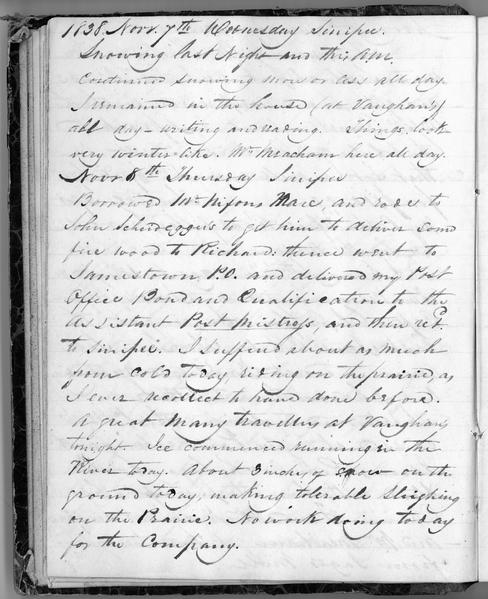 1838. Novr. 7th Wednesday Sinipee.
Snowing last Night and this AM.
Continued snowing more or less all day.
I remained in the house (at Vaughan's)
all day - writing and reading. Things look
very winter-like. Mr Meacham here all day.
Novr 8th Thursday Sinipee
Borrowed Mr. Nixons Mare, and rode to
John Scheideggers to get him to deliver some
fire wood to Richard: thence went to
Jamestown, P.O. and delivered my Post
Office Bond and Qualification to the
Assistant Post Mistress, and then retd.
to Sinipee. I suffered about as much
from cold today, riding on the prairie, as
I ever recollect to have done before.
A great many travellers at Vaughans
tonight. Ice commenced running in the
River today. About 3 inches of snow on the
ground today, making tolerable sleighing
on the Prairie. No work doing today
for the Company.